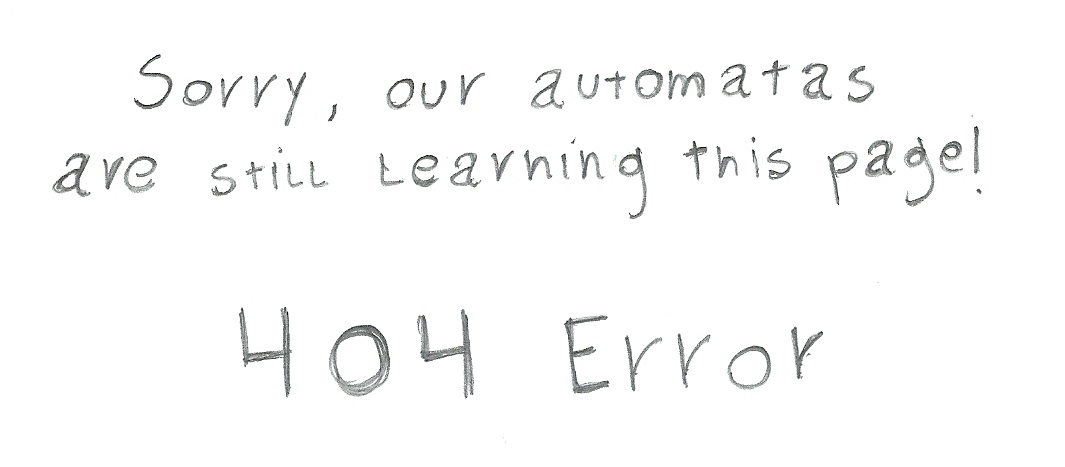 Sorry, our automatas
are still learning this page!
404 Error